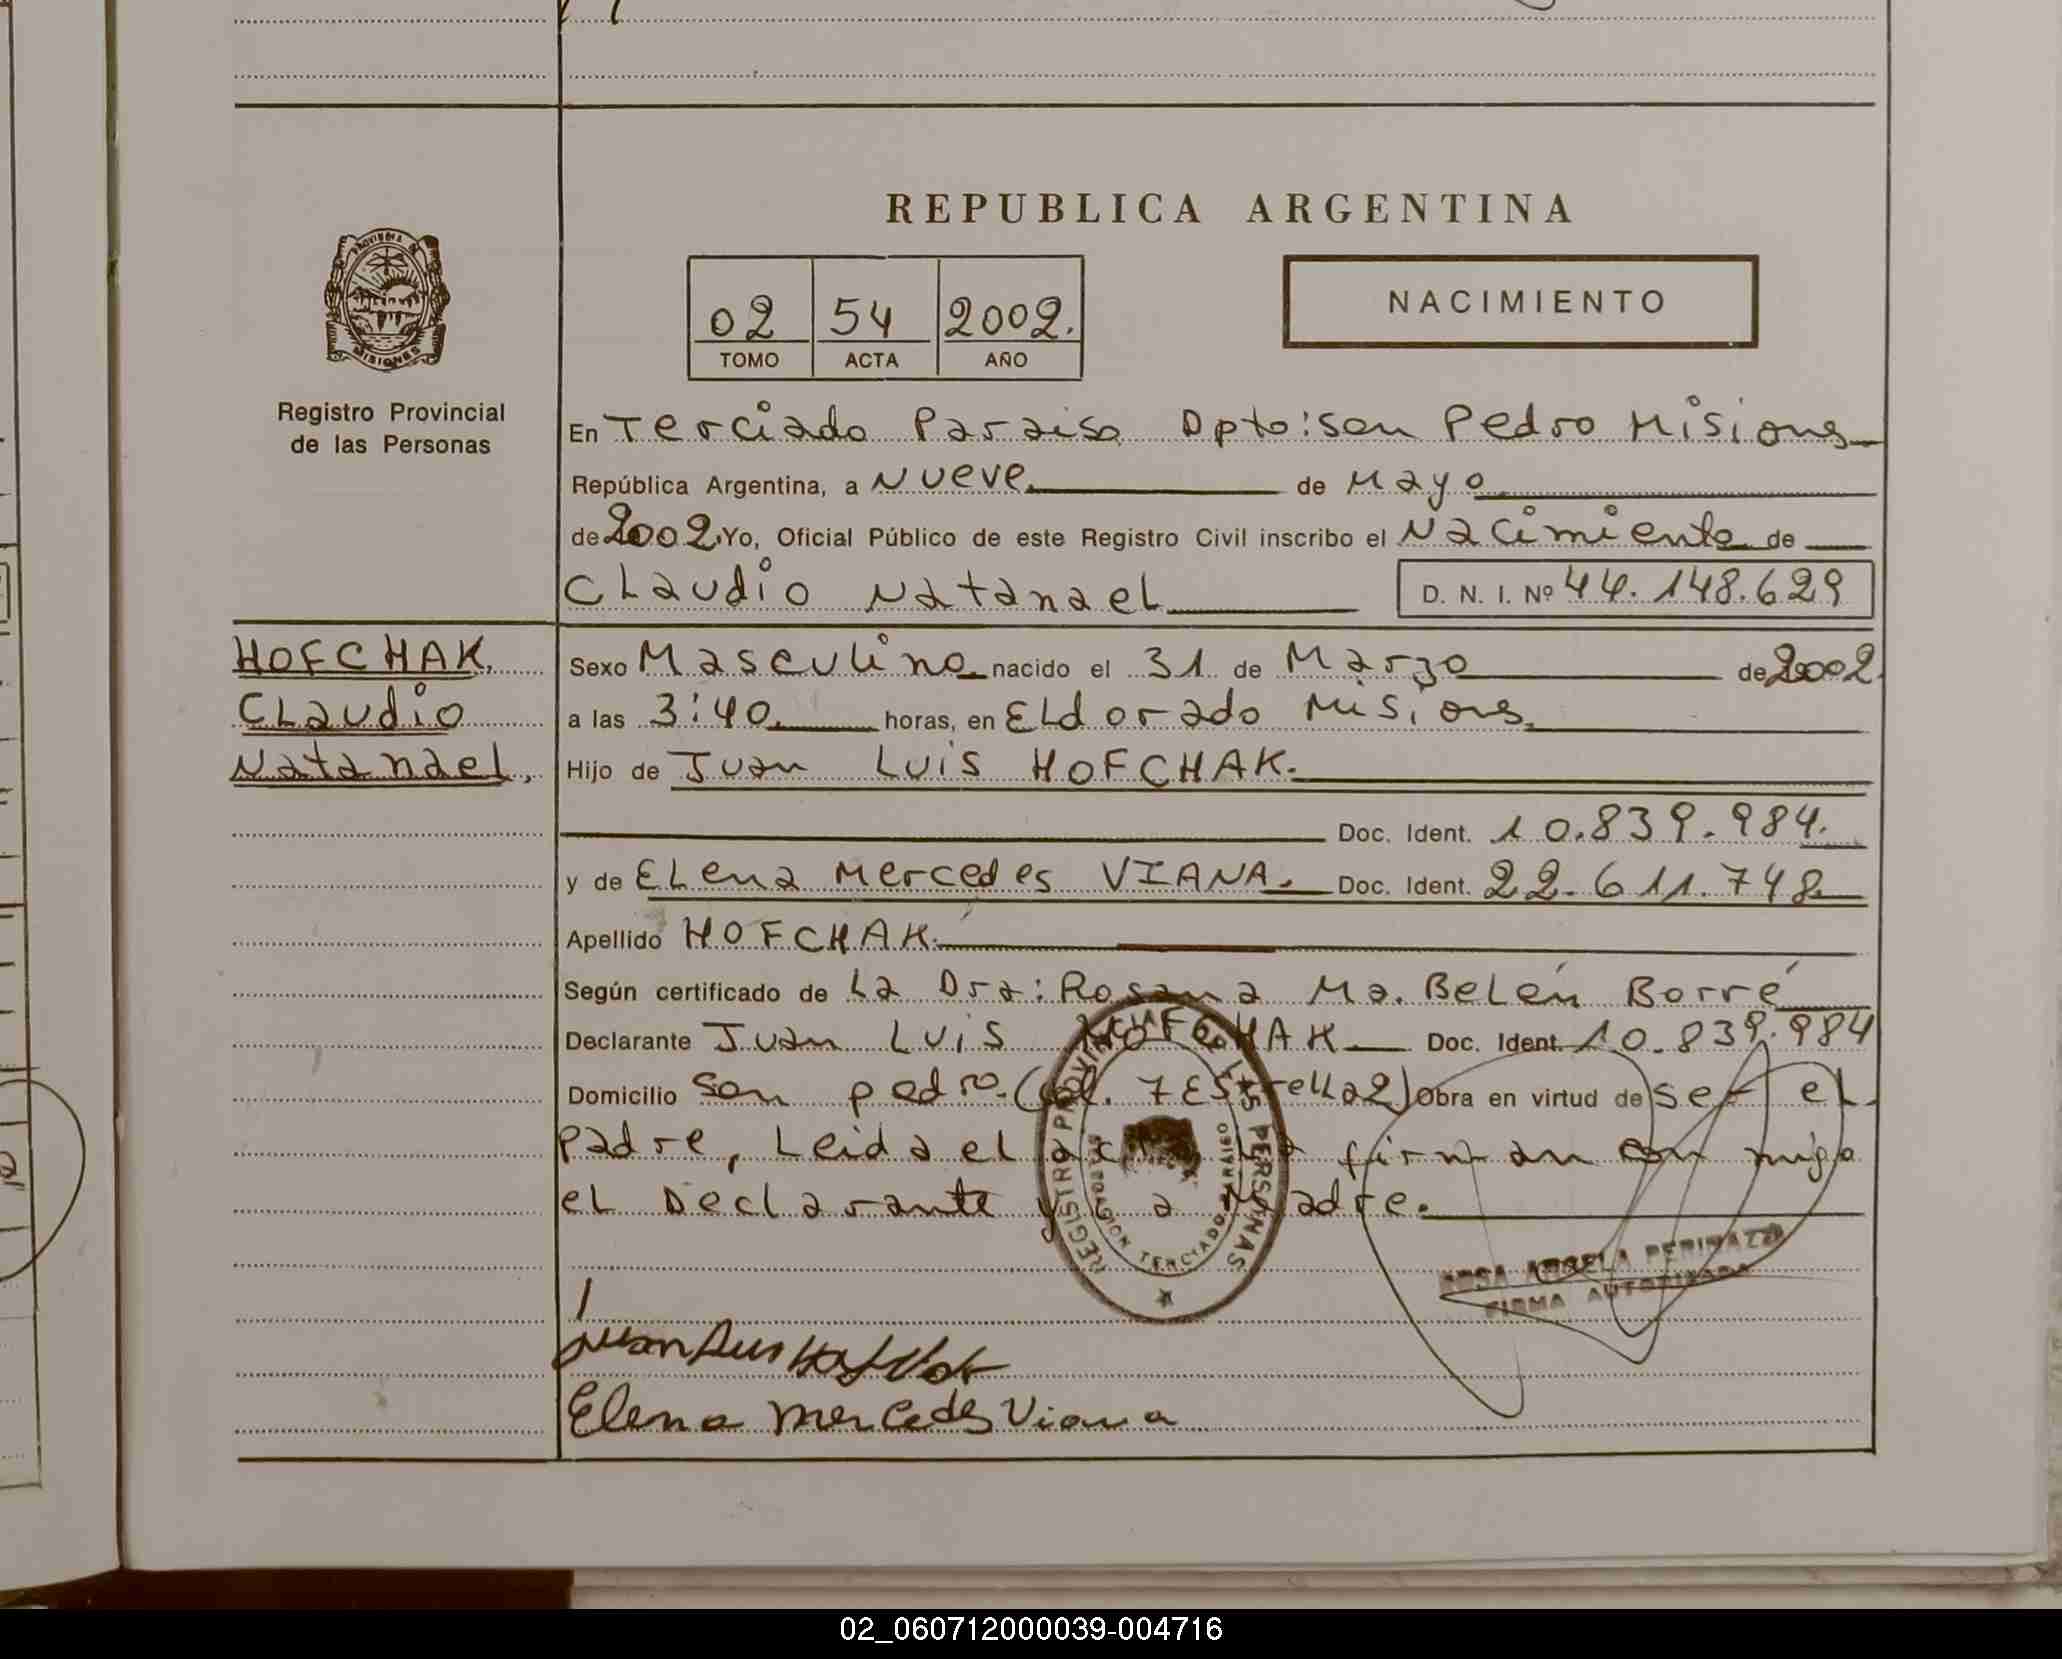 REPUBLICA ARGENTINA
PROVINCIA DE
MISIONES
Registro Provincial
de las Personas
02 54 2002.
TOMO ACTA AÑO
NACIMIENTO
En Terciado Paraiso Dpto: San Pedro Misiones
República Argentina, a Nueve de Mayo
de 2002. Yo, Oficial Público de este Registro Civil inscribo el Nacimiento de
Claudio Natanael D. N. I. Nº 44.148.629
HOFCHAK.
Claudio
Natanael,
Sexo Masculino nacido el 31 de Marzo de 2002.
a las 3:40 horas, en Eldorado Misiones
Hijo de Juan Luis HOFCHAK.
Doc. Ident. 10.839.984.
y de Elena Mercedes VIANA. Doc. Ident. 22.611.748
Apellido HOFCHAK.
Según certificado de La Dra: Rosana Ma. Belén Borré
Declarante Juan Luis HOFCHAK Doc. Ident. 10.839.984
Domicilio San pedro. (Col. 7 Estrellas) Obra en virtud de ser el
Padre, Leida el acta la firman con migo
el Declarante y la Madre.
REGISTRO PROVINCIAL DE LAS PERSONAS
DELEGACION TERCIADO PARAISO
ROSA ANGELA
FIRMA AUTORIZADA
Juan Luis Hofchak
Elena Mercedes Viana
02_060712000039-004716